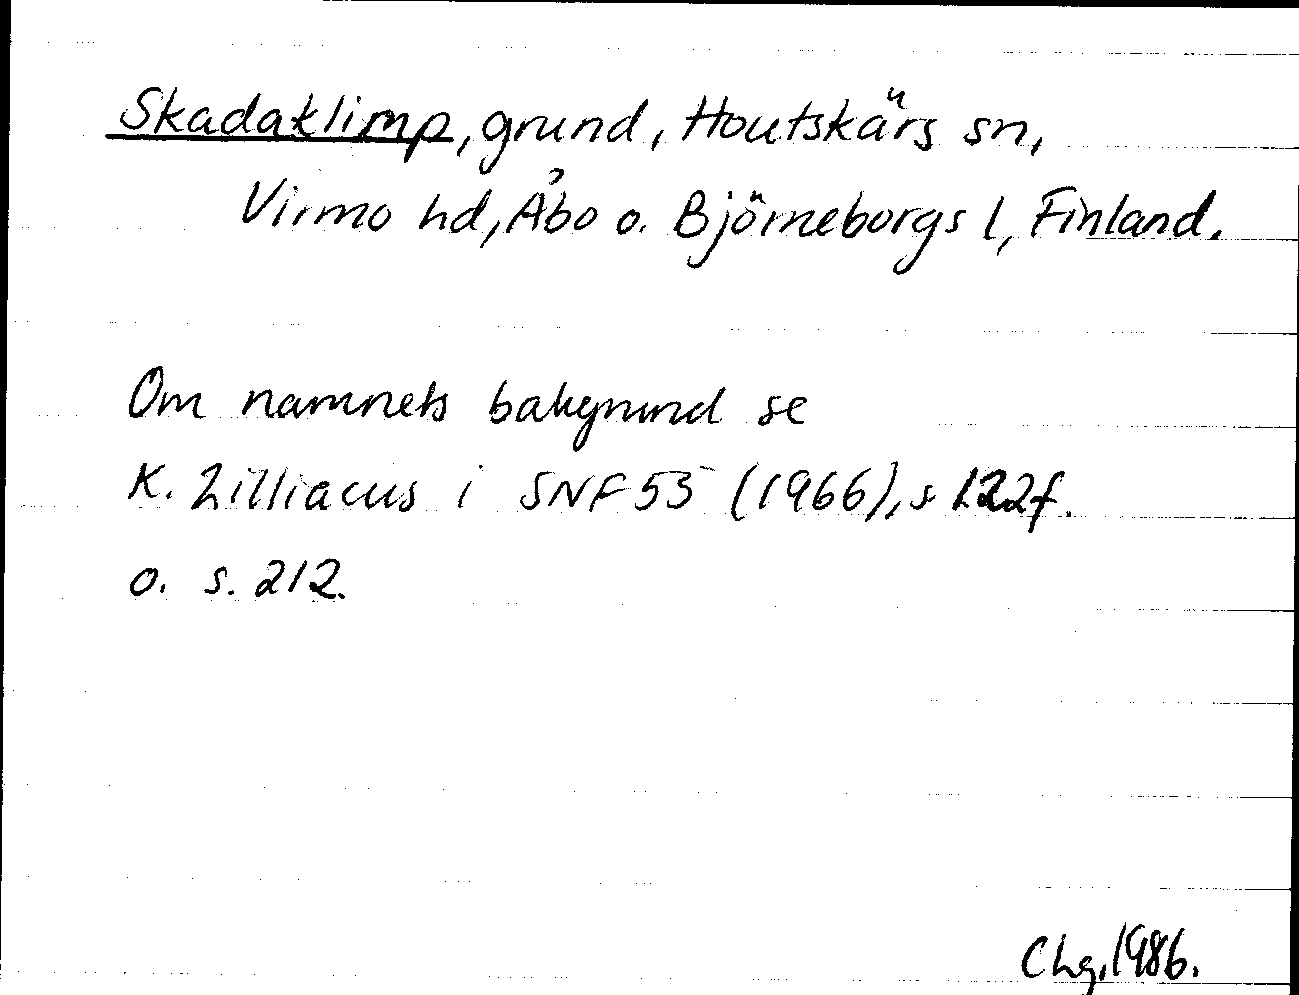 Skadaklimp, grund, Houtskärs sn,
Virmo hd, Åbo o. Björneborgs l, Finland.
Om namnets bakgrund se
K. Zilliacus i SNF 55 (1966), s 122f.
o. s. 212.
Chg. 1986.